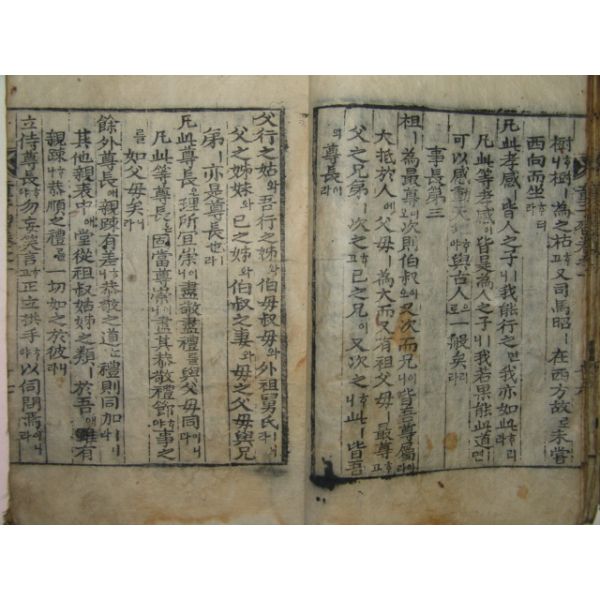 樹하니樹ㅣ爲之枯하고又司馬昭ㅣ在西方故로未嘗
西向而坐하더라
凡此孝感이皆人之子ㅣ니我能行之면我亦如此하리라
凡此等孝感이皆是爲人之子ㅣ니我若果能此道면
可以感動天하야與古人으로一般矣리라
事長第三
祖ㅣ爲最尊오次則伯叔이오又次而兄이니皆吾尊屬이라
大抵於人에父母ㅣ爲大而又有祖父母ㅣ最尊하고
父之兄弟ㅣ次之하고己之兄이又次之하니皆吾
의尊長이라
父行之姑와吾行之姊와伯母叔母와外祖舅氏라
父之姊妹와己之姊와伯叔之妻와母之父母與兄
弟ㅣ亦是尊長也라
凡此尊長은理所宜崇이니盡敬盡禮를與父母同이니라
凡此等尊長을固當尊崇이니盡其恭敬禮節하야事之
를如父母矣니라
餘外尊長애親疎有差하니恭敬之道는禮則同加ㅣ니라
其他親表中애堂從祖叔姑姊之類ㅣ於吾애雖有
親疎나恭順之禮를一切如之於彼니라
立侍尊長야勿妄笑言하고正立拱手하야以伺問焉이니라